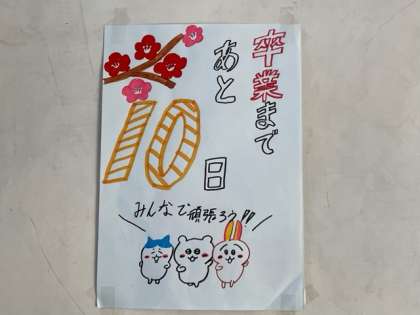 卒業まで
あと
10日
みんなで頑張ろう!!